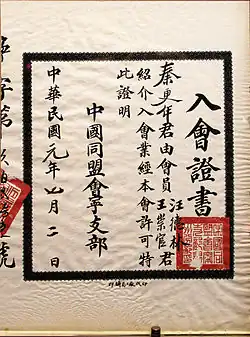 入會證書
秦更年君由會員
汪德林
王崇官
君
紹介入會業經本會許可特
此證明
中國同盟會寧支部
中華民國元年月二日
字第
號